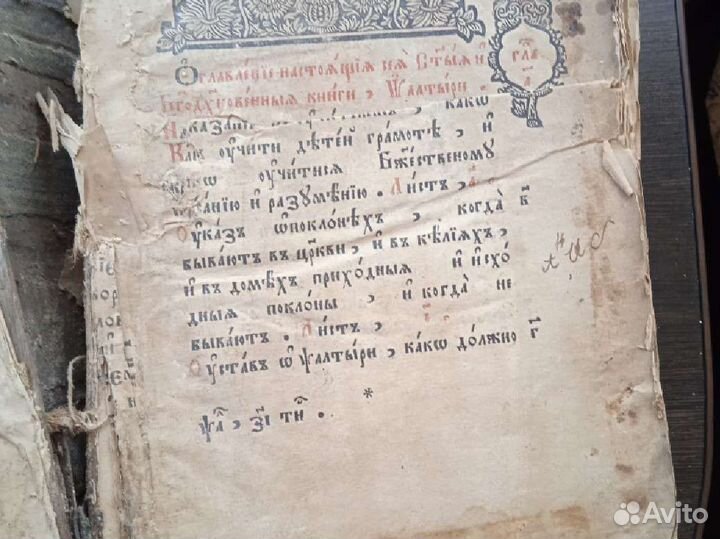 Ѻглавле́нїе настоѧ́щїѧ сеѧ̀ Ст҃ы́ѧ и҆
Бг҃одх҃нове́нныѧ кни́ги, Ѱалты́ри.
глава̀
а҃
Наказа́нїе ко ᲂу҆чи́телємъ, ка́кѡ
и҆̀мъ ᲂу҆чи́ти дѣте́й гра́мотѣ, и҆
ка́кѡ ᲂу҆чи́тисѧ Бж҃е́ственомꙋ
писа́нїю и҆ разꙋмѣ́нїю. Ли́стъ, а҃.
Оу҆ка́зъ ѡ҆ покло́нѣхъ, когда̀
быва́ютъ въ цр҃кви, и҆ въ ке́лїѧхъ,
и҆ въ домѣ́хъ прихо́дныѧ и҆ и҆схо́
дныѧ покло́ны, и҆ когда̀ не
быва́ютъ. Ли́стъ, і҃.
Оу҆ста́въ ѡ҆ Ѱалты́ри, ка́кѡ до́лжно
*
Avito